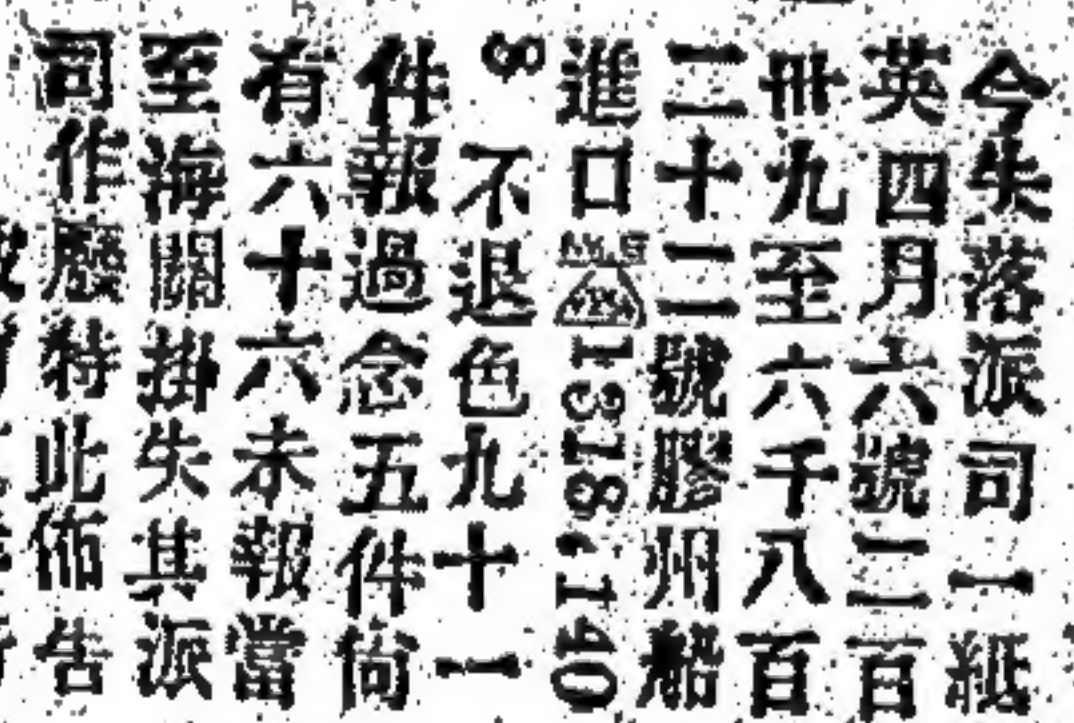 今失落派司一紙
英四月六號二百
卅九至六千八百
二十二號膠州船
進口1318,140
8不退色九十一
件報過念五件尙
有六十六未報當
至海關掛失其派
司作廢特此佈告